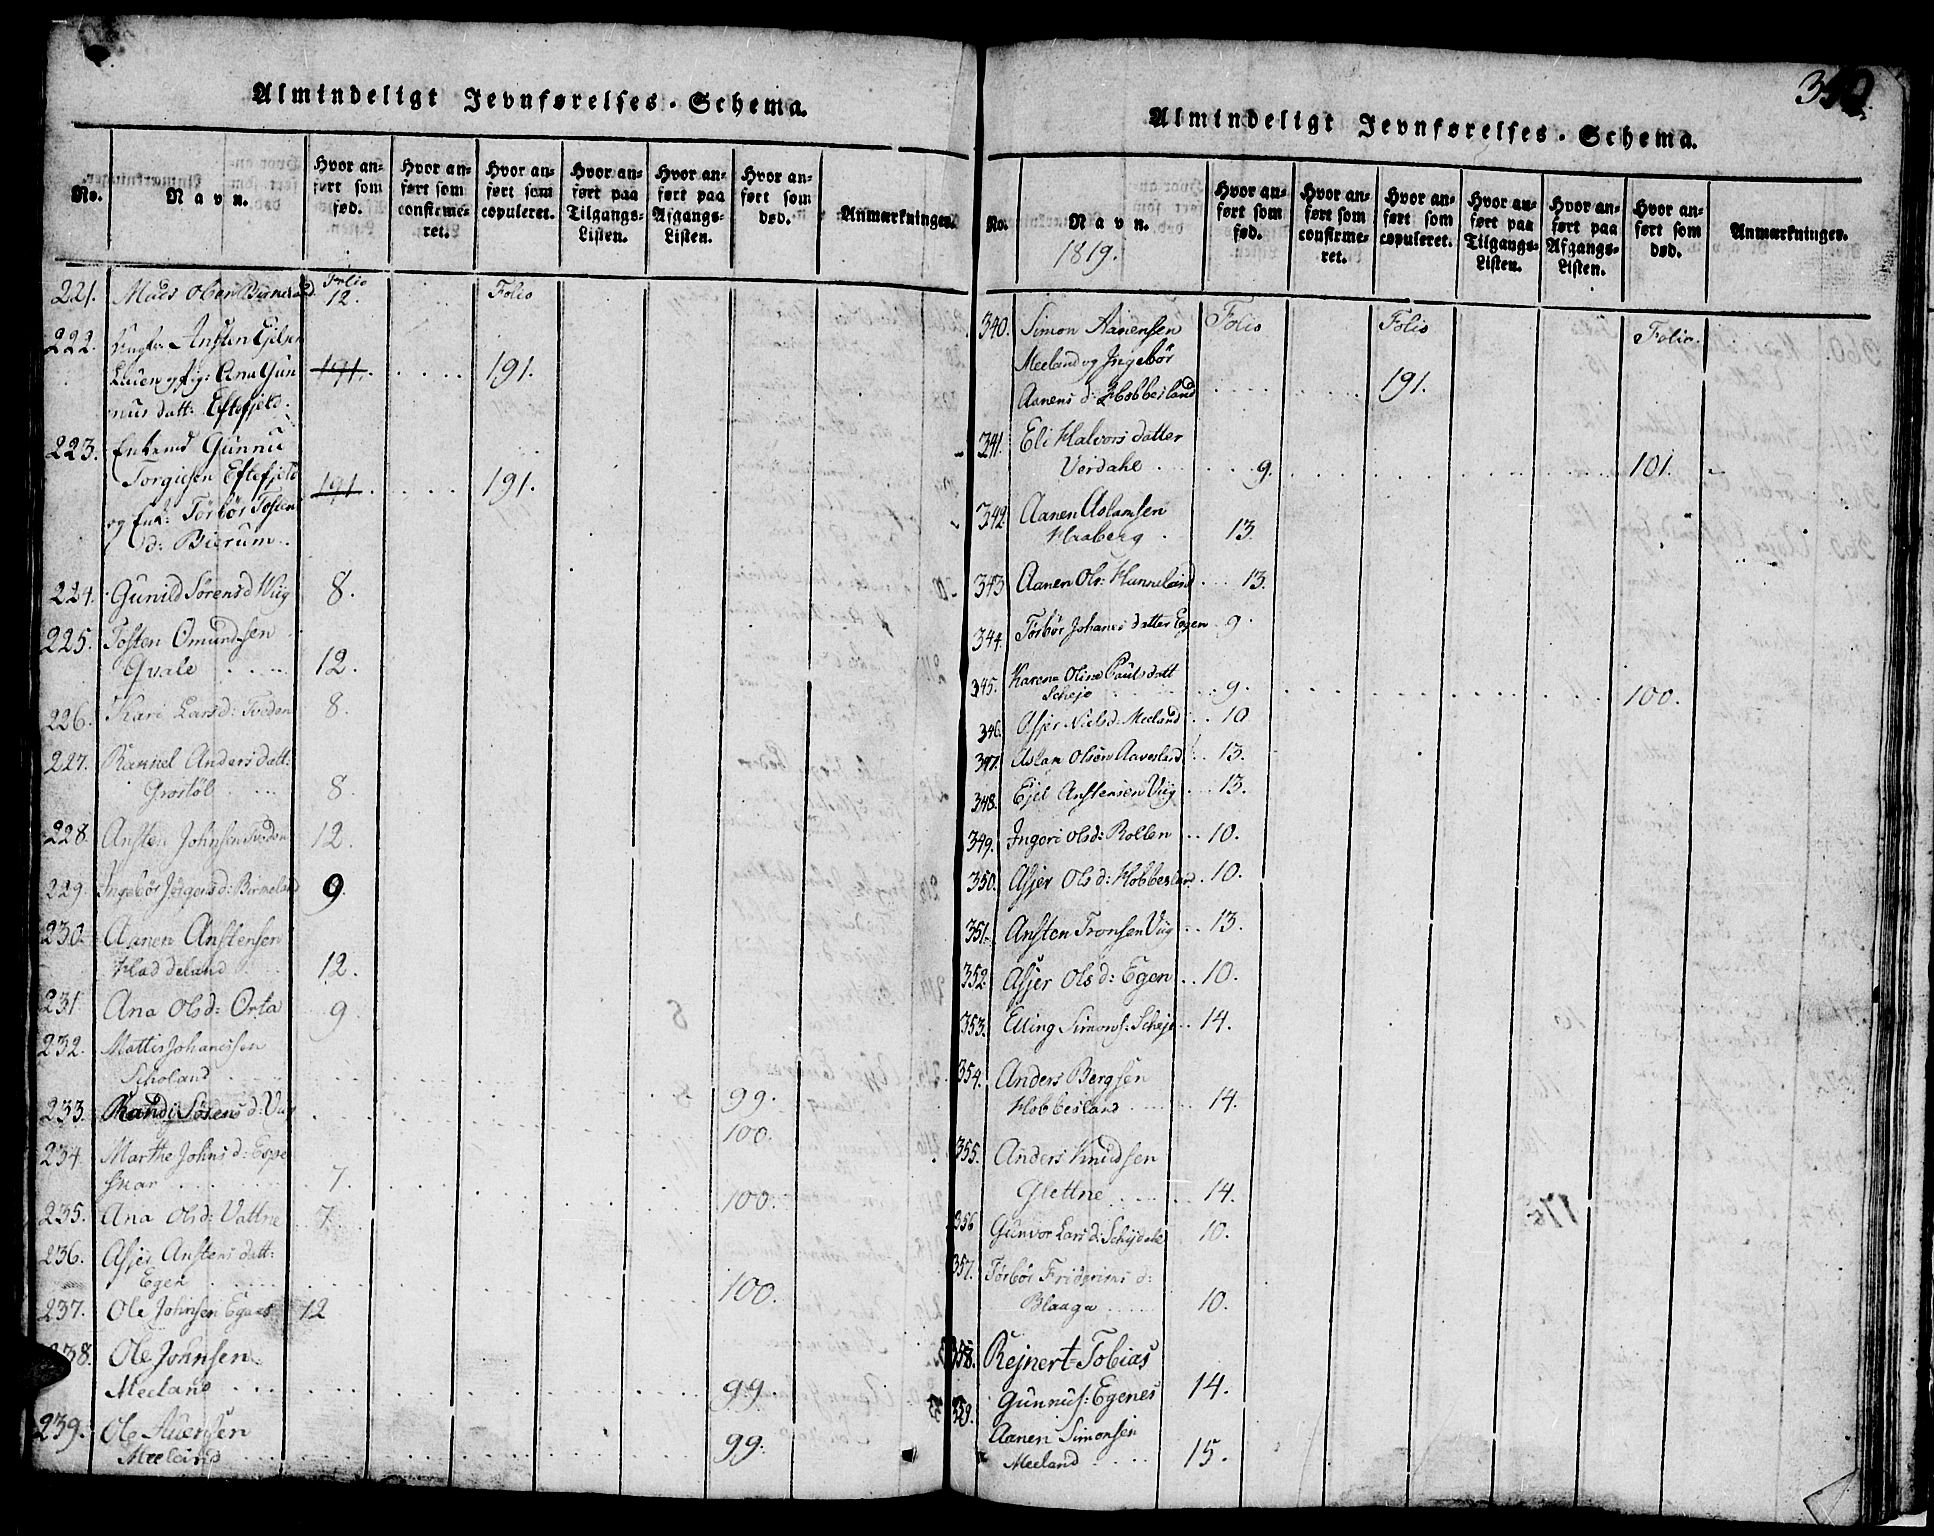 Almindeligt Jevnførelses-Schema.
No.
Navn.
Hvor an-
ført som
fød.
Hvor an-
ført som
confirme-
ret.
Hvor an-
ført som
copuleret.
Hvor an-
ført paa
Tilgangs-
Listen.
Hvor an-
ført paa
Afgangs-
Listen.
Hvor an-
ført som
død.
Anmærkninger.
Folio Folio
221. Mads Olsen Birkeland 12.
222. Ungk: Ansten Ejelsen
Lauen og pig: Ana Gun 191. . . . . 191.
nus datt: Eftefjeld.
223. Enkemd Gunnu
Torgiesen Eftefjeld 191. . . . . 191.
og Enk: Törbör Tostens
d: Bierum.
224. Gunild Sörensd Viig 8.
225. Tosten Omundsen
Qvale . . . . 12.
226. Kari Larsd: Tveden 8.
227. Rannel Anders datt:
Grostöl . . . . 8.
228. Ansten Johnsen Tveden 12.
229. Ingebör Jörgensd: Birkeland 9.
230. Aanen Anstensen
Haddeland . . . 12.
231 Ana Olsd: Orta 9
232. Mattis Johanessen
Scholand . . . . 99.
233. Randi Sörens d: Viig . . . . 100.
234. Marthe Johns d: Espe
snar . . . . 7. . . . . 100.
235. Ana Olsd: Vattne 7.
236. Asjer Anstens datt:
Egen . . . . 100.
237. Ole Johnsen Egenes 12
238. Ole Johnsen
Meeland . . . . 99.
239. Ole Auensen
Meeland . . . . 99.
350.
Almindeligt Jevnførelses-Schema.
No.
Navn.
1819.
Hvor an-
ført som
fød.
Hvor an-
ført som
confirme-
ret.
Hvor an-
ført som
copuleret.
Hvor an-
ført paa
Tilgangs-
Listen.
Hvor an-
ført paa
Afgangs-
Listen.
Hvor an-
ført som
død.
Anmærkninger.
340. Simon Aanensen Folio Folio Folio.
Meeland og Ingebör
Aanens d: Hobbesland . . . . 191.
341. Eli Halvors datter
Verdahl . . . . 9. . . . . 101.
342. Aanen Aslamsen
Haaberg . 13.
343 Aanen Ols: Hunneland . . . 13.
344. Törbör Johanes datter Egen . 9.
345. Karena Oline Pauls datt
Scheje . . . . 9. . . . . 100.
346. Asjer Niels d: Meeland . . 10
347. Aslam Olsen Aavesland . . 13.
348. Ejel Anstensen Viig . . . 13.
349. Ingeri Olsd: Rollen . . 10.
350. Asjer Olsd: Hobbesland . 10.
351. Ansten Tronsen Viig . . 13.
352. Asjer Olsd: Egen . . 10.
353. Elling Simons: Scheje . . 14.
354. Anders Bergsen
Hobbesland . . . . 14.
355. Anders Knudsen
Slettne . . . . 14.
356 Gunvor Lars d: Schejdahl 10.
357. Törbör Friderins d:
Blaaga . . . . 10.
358. Rejnert Tobias
Gunnus: Egenes 14.
359. Aanen Simonsen
Meeland . . . . 15.